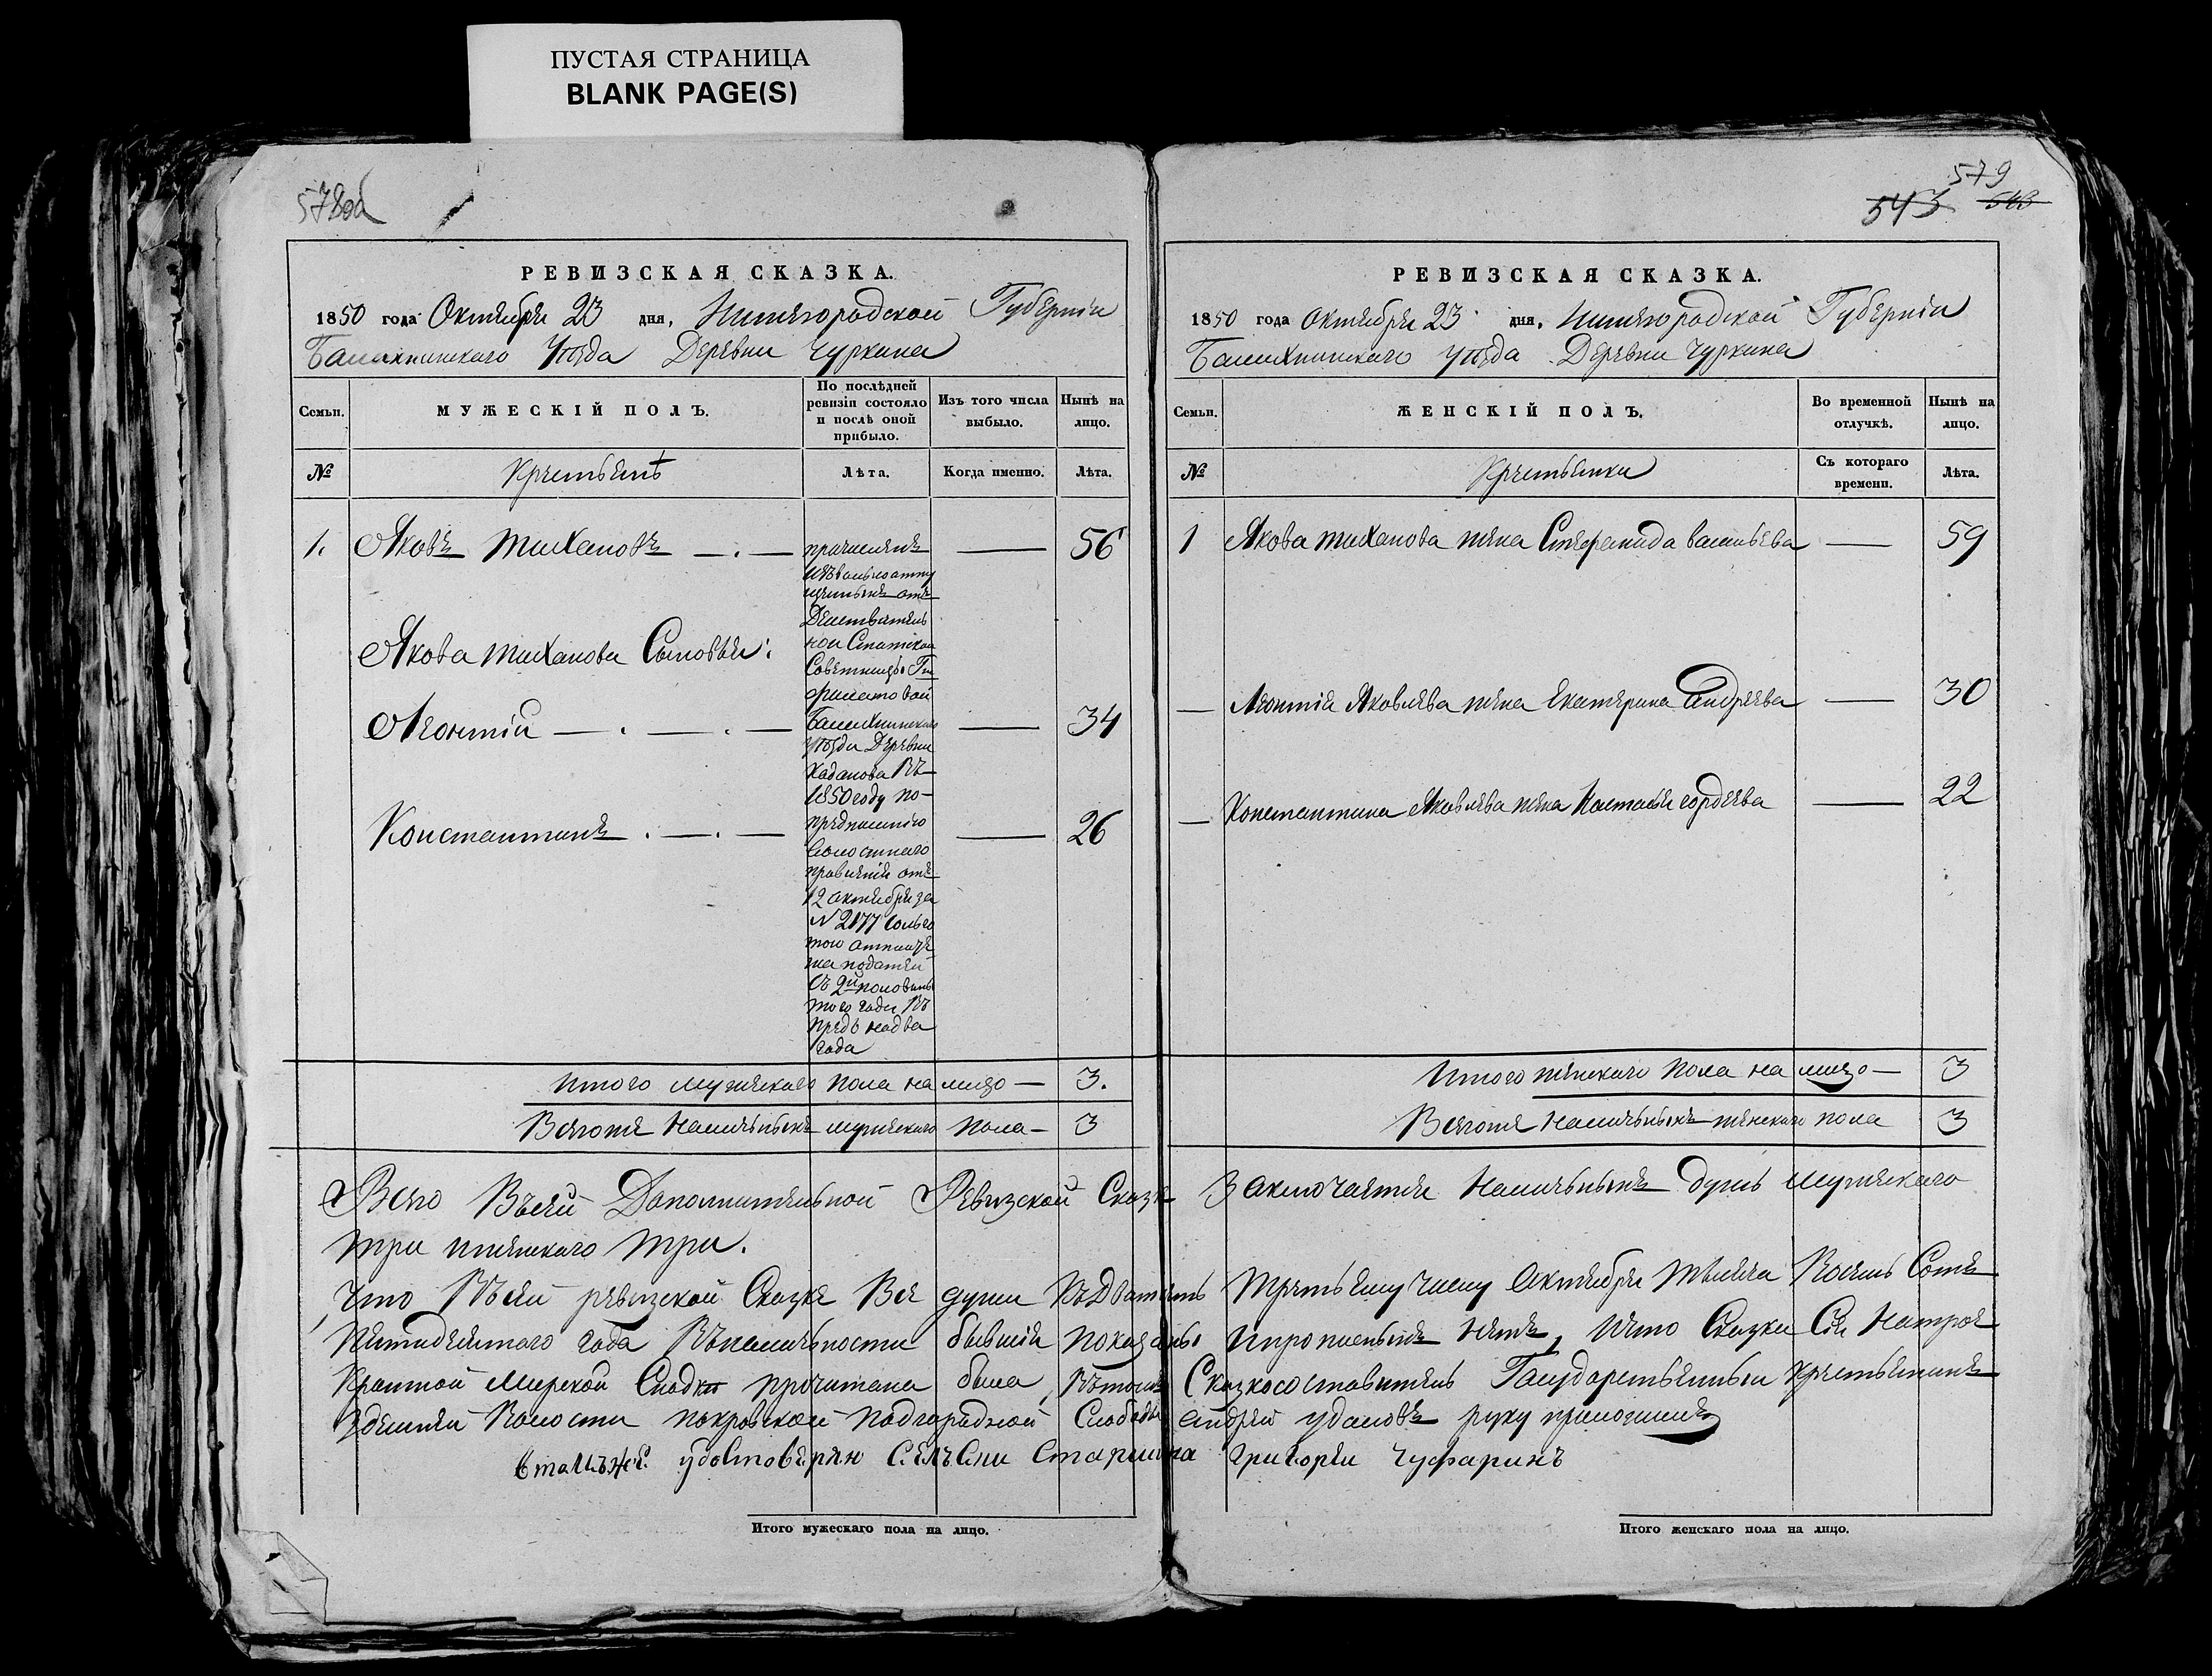 ПУСТАЯ СТРАНИЦА
BLANK PAGE(S)
578об
РЕВИЗСКАЯ СКАЗКА.
1850 года Октября 23 дня, Нижегородской Губерніи
Балахнинскаго Уѣзда Деревни Чуркина
Семьи.
МУЖЕСКІЙ ПОЛЪ.
По послѣдней ревизіи состояло и послѣ оной прибыло.
Изъ того числа выбыло.
Нынѣ на лицо.
№
Крестьянъ
Лѣта.
Когда именно.
Лѣта.
1. Яковъ Тихановъ — . — 56
причисленъ
изъ вольноотпу
щенныхъ отъ
Действитель
ной Статской
Советницы
Балахнинскаго
уѣзда Деревни
1850 году по
предписанію
волостнаго
правленія отъ
12 октября за
N 2177 сольго
тою
податей
съ 2й половины
того года въ
предь надва
года
Якова Тиханова Сыновья:
Леонтій — . — . — 34
Константинъ . — . — 26
Итого мужескаго пола на лицо — 3.
Всегоже наличныхъ мужескаго пола — 3
579
543 543
РЕВИЗСКАЯ СКАЗКА.
1850 года Октября 23 дня, Нижегородской Губерніи
Балахнинскаго Уѣзда Деревни Чуркина
Семьи.
ЖЕНСКІЙ ПОЛЪ.
Во временной отлучкѣ.
Нынѣ на лицо.
№
Крестьянки
Съ котораго времени.
Лѣта.
1 Якова Тиханова жена Стефанида Васильева — 59
— Леонтія Яковлева жена Екатерина Андреева — 30
— Константина Яковлева жена Настасья Гордеева — 22
Итого женскаго пола на лицо — 3
Всегоже наличныхъ женскаго пола 3
Всего Въсей Дополнительной Ревизской Сказке Заключается Наличныхъ душь мужескаго
три женскаго три.
Что Въсей ревизской Сказке Все души Къ Двадцать Третьему числу Октября Тысяча Восемь Сотъ
Пятидесятаго года Въналичности бывшія показаны ипрописныхъ нетъ, Ичто Сказка Сія Натрое
Кратной Мирской Сходке прочитана была, Вътомъ Сказкосоставитель Государственный Крестьянинъ
здешней Волости покровской подгородной Слободы Андрей Удаловъ руку приложилъ
Втомъже удостоверяю Сельски Старшина Григорѣи Чуфаринъ
Итого мужескаго пола на лицо.
Итого женскаго пола на лицо.